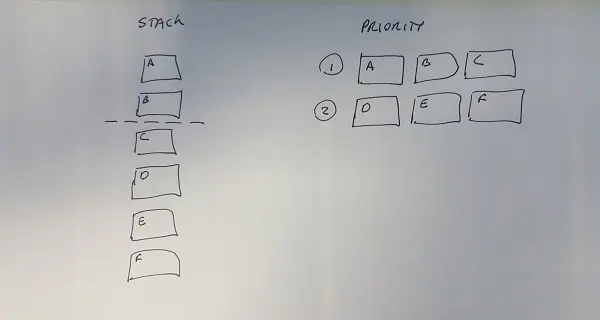 STACK
A
B
C
D
E
F
PRIORITY
1 A B C
2 D E F